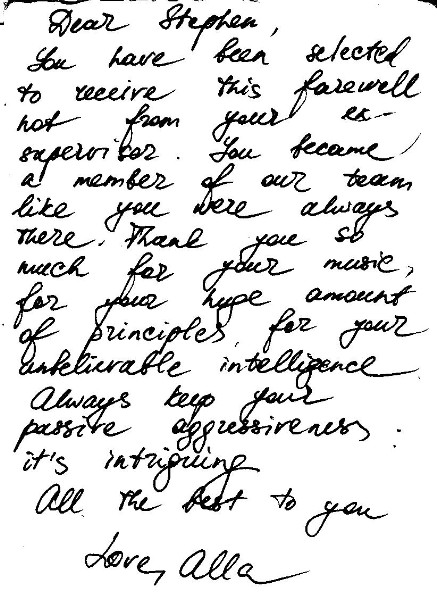 Dear Stephen,
You have been selected
to receive this farewell
not from your ex-
supervisor. You became
a member of our team
like you were always
there. Thank you so
much for your music,
for your huge amount
of principles, for your
unbelievable intelligence
Always keep your
passive aggressiveness.
it's intriguing
All the best to you
Love, Alla